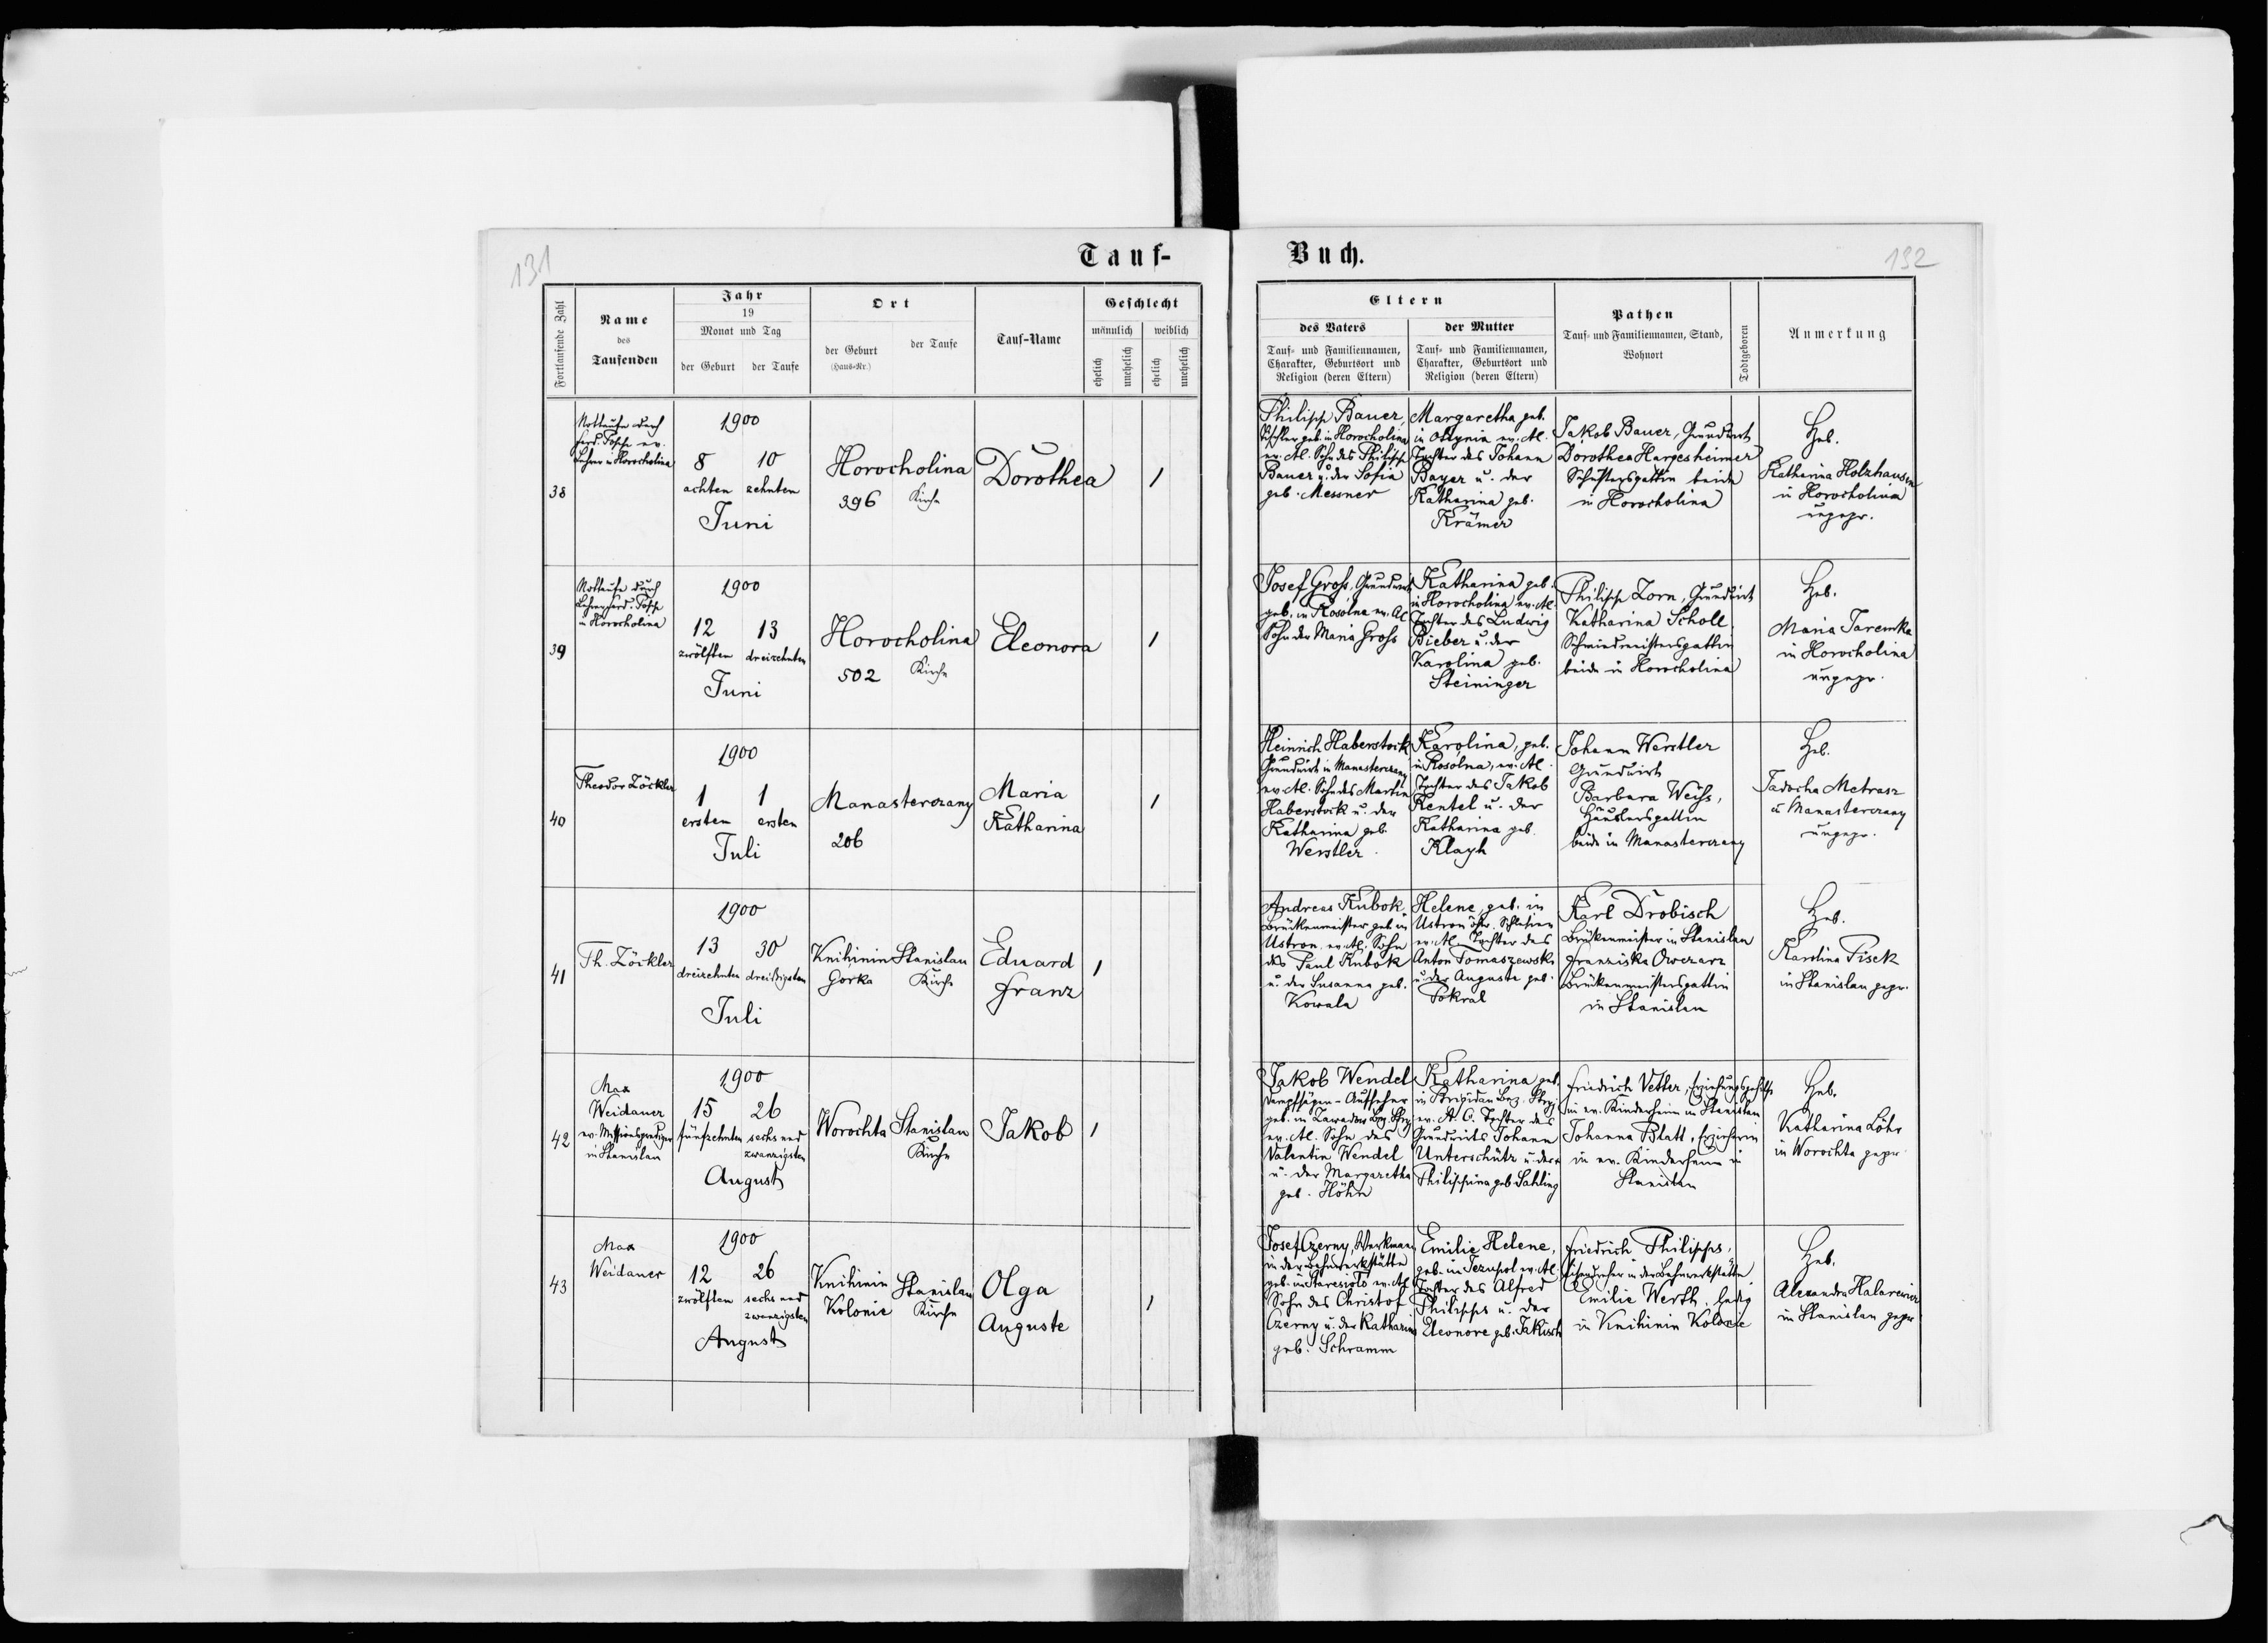 131
Tauf-
Fortlaufende Zahl
Name
des
Taufenden
Jahr
19
Monat und Tag
der Geburt
der Taufe
Ort
der Geburt
(Haus-Nr.)
der Taufe
Tauf-Name
Geschlecht
männlich
weiblich
ehelich
unehelich
ehelich
unehelich
38
Nottaufe durch
Ferd. Posche ev.
Lehrer in Horocholina
1900
8 10
achten zehnten
Juni
Horocholina
396 Kirche
Dorothea
1
39
Nottaufe durch
Lehrer Ferd. Posche
in Horocholina
1900
12 13
zwölften dreizehnten
Juni
Horocholina
502 Kirche
Eleonora
1
40
Theodor Zöckler
1900
1 1
ersten ersten
Juli
Manasterczany
206
Maria
Katharina
1
41
Th. Zöckler
1900
13 30
dreizehnten dreißigsten
Juli
Knihinin Stanislau
Gorka Kirche
Eduard
Franz
1
42
Max
Weidauer
ev. Missionsprediger
in Stanislau
1900
15 26
fünfzehnten sechs und
zwanzigsten
August
Worochta Stanislau
Kirche
Jakob
1
43
Max
Weidauer
1900
12 26
zwölften sechs und
zwanzigsten
August
Knihinin Stanislau
Kolonie Kirche
Olga
Auguste
1
Buch.
132
Eltern
des Vaters
Tauf- und Familiennamen,
Charakter, Geburtsort und
Religion (deren Eltern)
der Mutter
Tauf- und Familiennamen,
Charakter, Geburtsort und
Religion (deren Eltern)
Pathen
Tauf- und Familiennamen, Stand,
Wohnort
Todtgeboren
Anmerkung
Philipp Bauer,
Tischler geb. in Horocholina
ev. Al. Sohn des Philipp
Bauer u. der Sofia
geb. Messner
Margaretha geb.
in Ottynia ev. Al.
Tochter des Johann
Bayer u. der
Katharina geb.
Krämer
Jakob Bauer, Grundwirt
Dorothea Hargesheimer
Schustersgattin beide
in Horocholina
Heb.
Katharina Holzhausen
in Horocholina
ungepr.
Josef Groß, Grundwirt
geb. in Rosolna ev. Al
Sohn der Maria Groß
Katharina geb.
in Horocholina ev. Al.
Tochter des Ludwig
Bieber u. der
Karolina geb.
Steininger
Philipp Zorn, Grundwirt
Katharina Scholl
Schmiedmeistersgattin
beide in Horocholina
Heb.
Maria Jaremka
in Horocholina
ungepr.
Heinrich Haberstock
Grundwirt in Manasterczany
ev. Al. Sohn des Martin
Haberstock u. der
Katharina geb.
Werstler
Karolina, geb.
in Rosolna, ev. Al.
Tochter des Jakob
Rentel u. der
Katharina geb.
Klayh
Johann Werstler
Grundwirt
Barbara Weiß,
Häuslersgattin
beide in Manasterczany
Heb.
Jadocha Metrasz
in Manasterczany
ungepr.
Andreas Kubok
Brückenmeister geb. in
Ustron, ev. Al. Sohn
des Paul Kubok
u. der Susanna geb.
Kowala
Helene, geb. in
Ustron östr. Schlesien
ev. Al. Tochter des
Anton Tomaszewski
u. der Auguste geb.
Pokral
Karl Drobisch
Brückenmeister in Stanislau
Franziska Owczarz
Brückenmeistersgattin
in Stanislau
Heb.
Karolina Pisek
in Stanislau gepr.
Jakob Wendel
Dampfsägen-Aufseher
geb. in Zawadow Bez. Stryj
ev. Al. Sohn des
Valentin Wendel
u. der Margaretha
geb. Höhn
Katharina geb.
in Brigidau Bez. Stryj
ev. A. C. Tochter des
Grundwirts Johann
Unterschütz u. der
Philippina geb. Sahling
Friedrich Vetter, Erziehungsgehilfe
im ev. Kinderheim in Stanislau
Johanna Blatt, Erzieherin
im ev. Kinderheim in
Stanislau
Heb.
Katharina Löhr
in Worochta gepr.
Josef Czerny, Werkmann
in der Bahnwerkstätte
geb. in Staresioło ev. Al
Sohn des Christof
Czerny u. der Katharina
geb. Schramm
Emilie Helene,
geb. in Jezupol ev. Al.
Tochter des Alfred
Philipps u. der
Eleonore geb. Jakisch
Friedrich Philipps,
Eisendreher in der Bahnwerkstätte
Emilie Werth, ledig
in Knihinin Kolonie
Heb.
Alexandra Halarewicz
in Stanislau gepr.